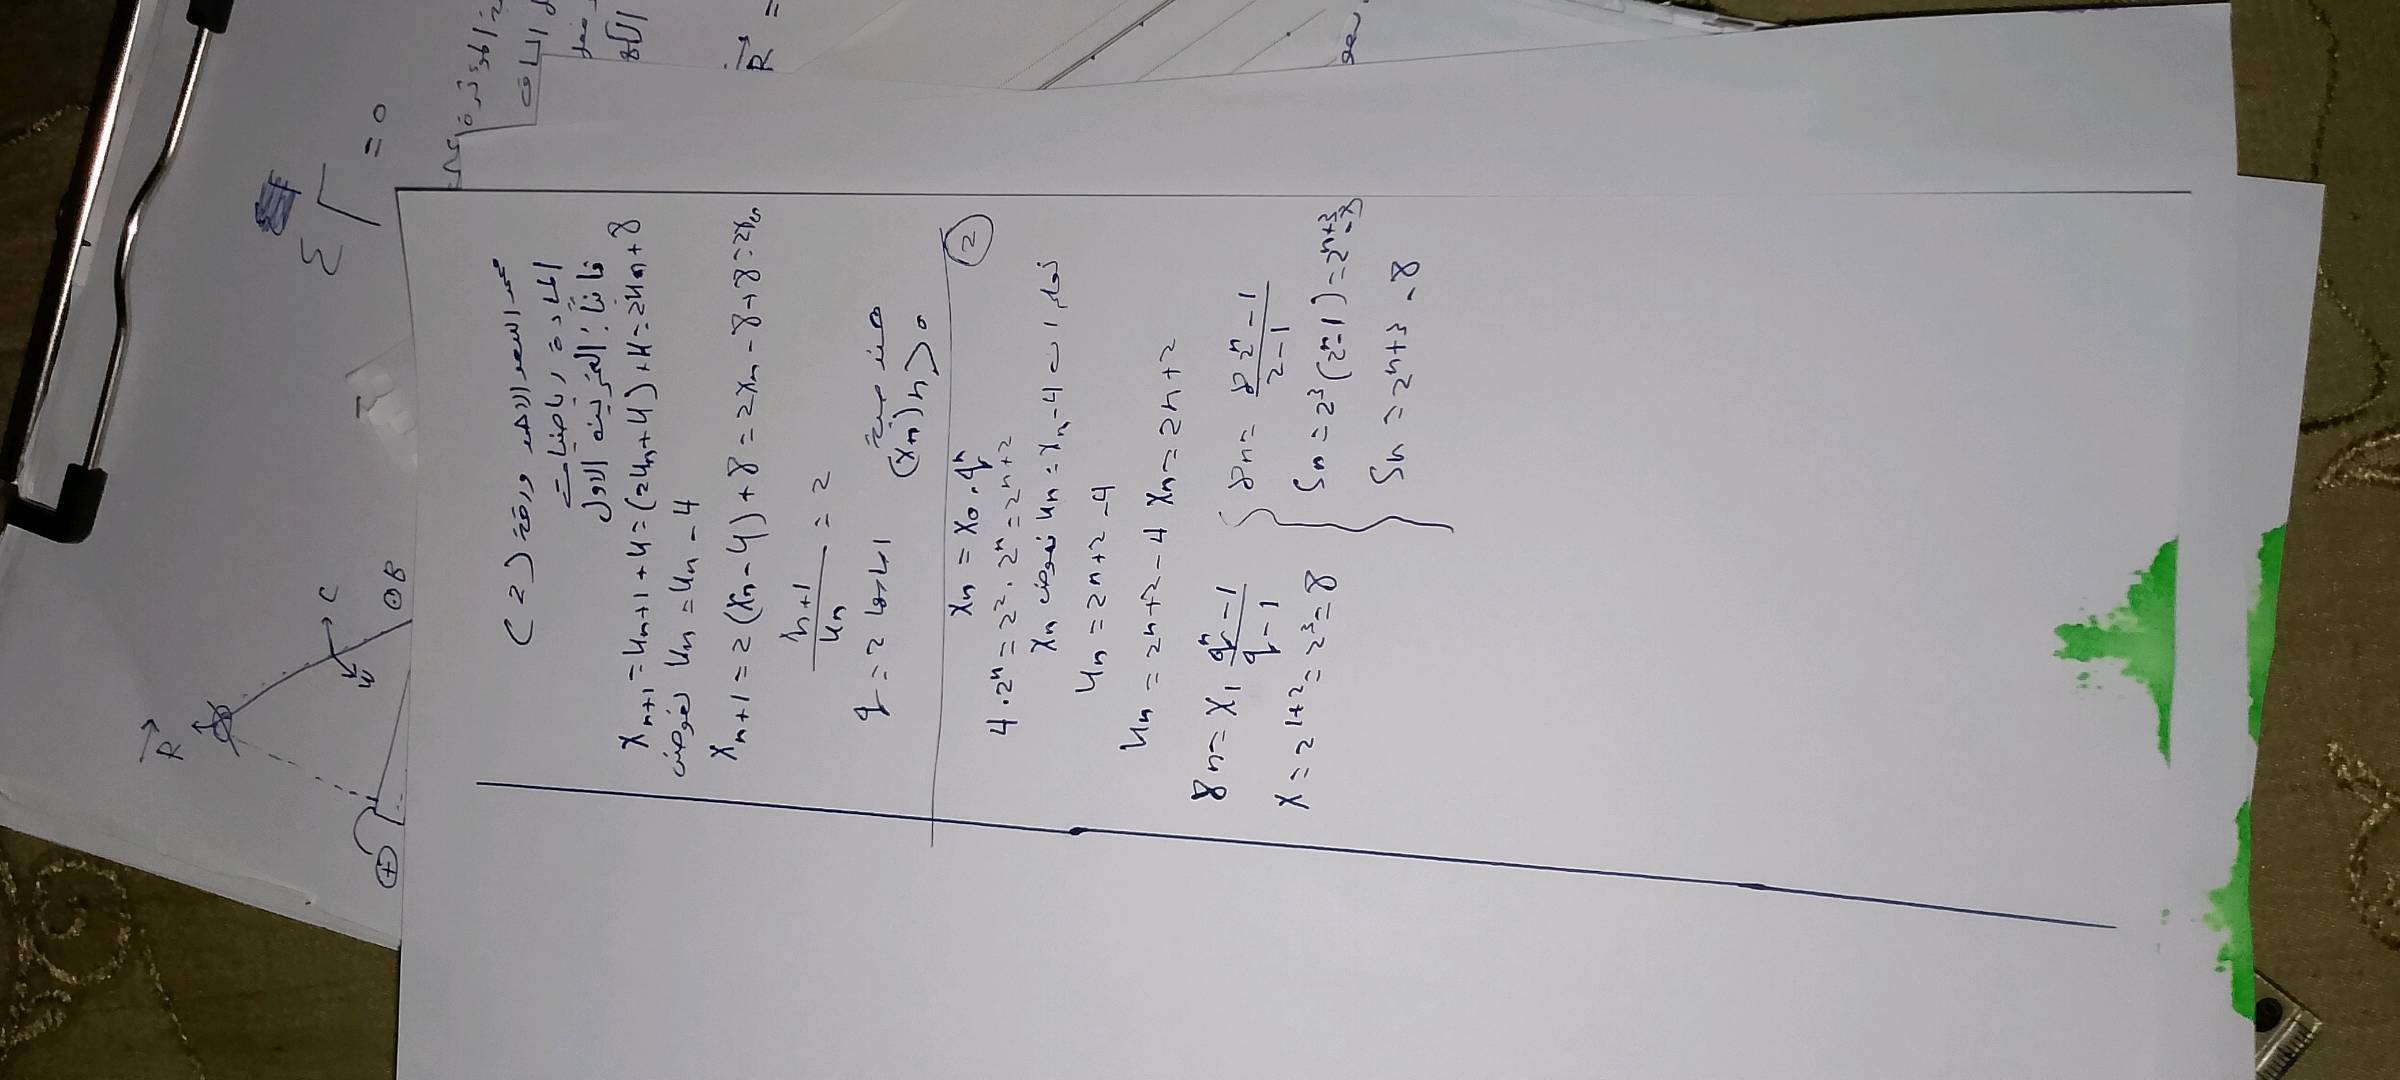 محمد السعد الاحمد ورقة (2)
المادة رياضيات
ثانياً: التمرين الاول
X_{n+1} = u_{n+1} + 4 = (2u_n + 4) + 4 = 2u_n + 8
نعوض u_n = u_n - 4
X_{n+1} = 2(X_n - 4) + 8 = 2X_n - 8 + 8 = 2X_n
\frac{n+1}{u_n} = 2
q = 2
(x_n) n ≥ 0
②
X_n = X_0 . q^n
4 . 2^n = 2^2 . 2^n = 2^{n+2}
نعلم ان u_n = x_n - 4 نعوض X_n
u_n = 2n+2 - 4
u_n = 2n+2 - 4 X_n = 2n+2
8n = X_1 \frac{q^n - 1}{q - 1}
X = 2^{1+2} = 2^3 = 8
8n = 8 \frac{2^n - 1}{2 - 1}
Sn = 2^3 (2^n - 1) = 2^{n+3} - 8
Sn = 2^{n+3} - 8
R =
= 0
R
C
w
B